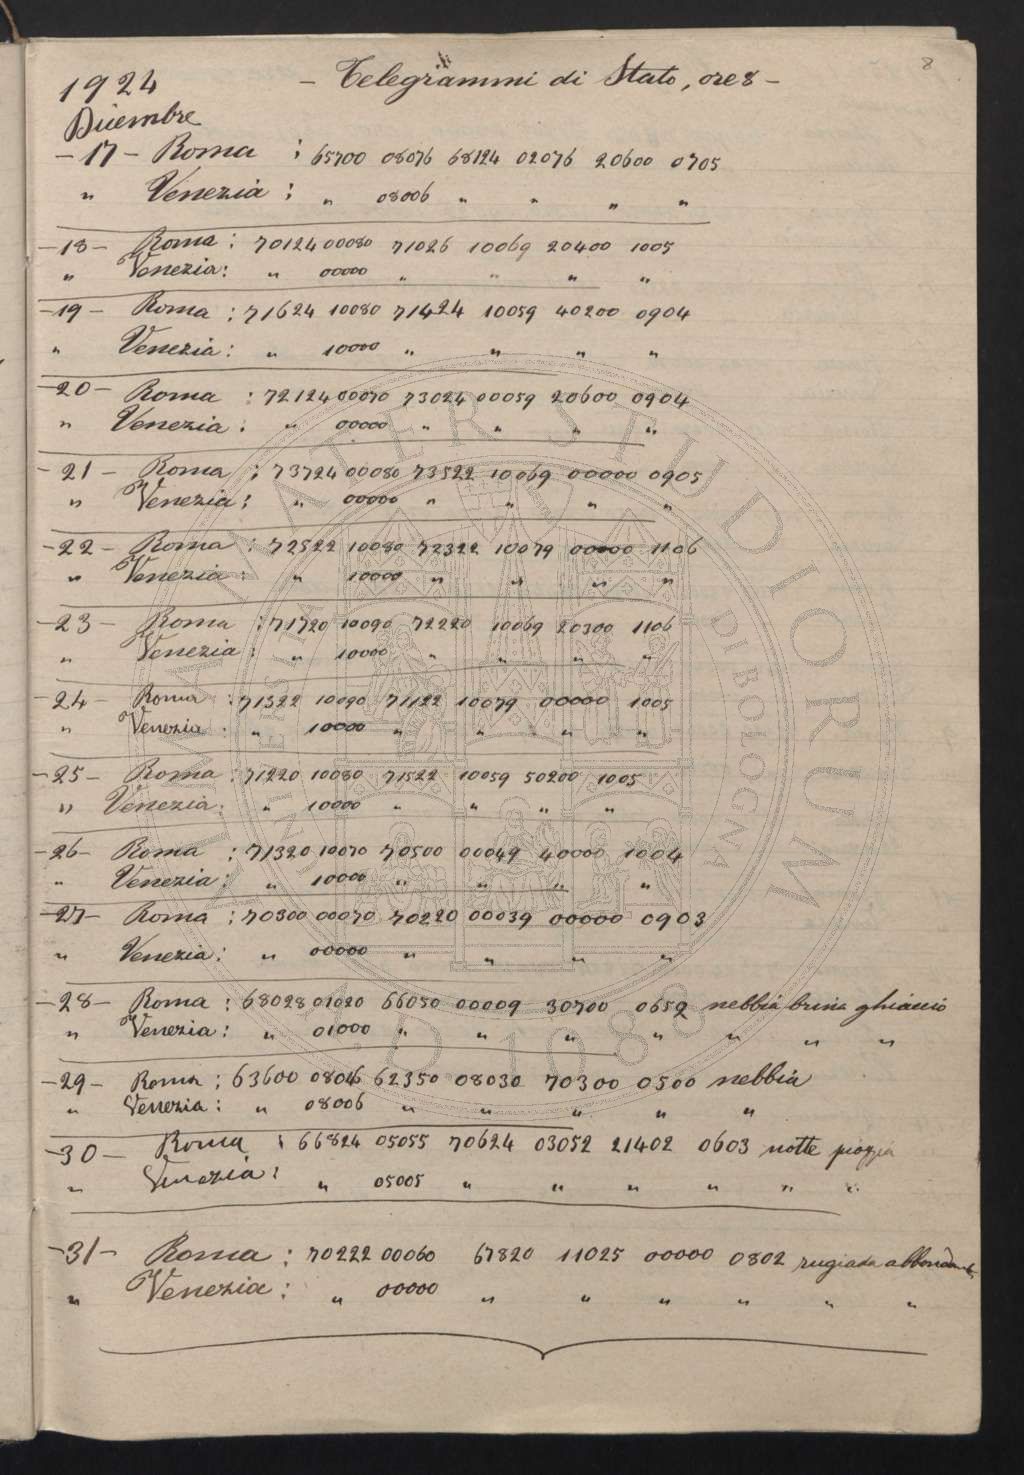 8
1924 – Telegrammi di Stato, ore 8 –
Dicembre
– 17 – Roma : 65700 08076 68124 02076 20600 0705
„ Venezia : „ 08006 „ „ „ „
– 18 – Roma : 70124 00080 71026 10069 20400 1005
„ Venezia : „ 00000 „ „ „ „
– 19 – Roma : 71624 10080 71424 10059 40200 0904
„ Venezia : „ 10000 „ „ „ „
– 20 – Roma : 72124 00070 73024 00059 20600 0904
„ Venezia : „ 00000 „ „ „ „
– 21 – Roma : 73724 00080 73522 10069 00000 0905
„ Venezia : „ 00000 „ „ „ „
– 22 – Roma : 72522 10080 72322 10079 00000 1106
„ Venezia : „ 10000 „ „ „ „
– 23 – Roma : 71720 10090 72220 10069 20300 1106
„ Venezia : „ 10000 „ „ „ „
– 24 – Roma : 71322 10090 71122 10079 00000 1005
„ Venezia : „ 10000 „ „ „ „
– 25 – Roma : 71220 10080 71522 10059 50200 1005
„ Venezia : „ 10000 „ „ „ „
– 26 – Roma : 71320 10070 70500 00049 40000 1004
„ Venezia : „ 10000 „ „ „ „
– 27 – Roma : 70300 00070 70220 00039 00000 0903
„ Venezia : „ 00000 „ „ „ „
– 28 – Roma : 68028 01020 66050 00009 30700 0652 nebbia brina ghiaccio
„ Venezia : „ 01000 „ „ „ „ „ „ „
– 29 – Roma : 63600 08046 62350 08030 70300 0500 nebbia
„ Venezia : „ 08006 „ „ „ „ „
– 30 – Roma : 66824 05055 70624 03052 21402 0603 notte pioggia
„ Venezia : „ 05005 „ „ „ „ „ „
– 31 – Roma : 70222 00060 67820 11025 00000 0802 rugiada
„ Venezia : „ 00000 „ „ „ „ „ „
ALMA MATER STUDIORUM
A.D. 1088